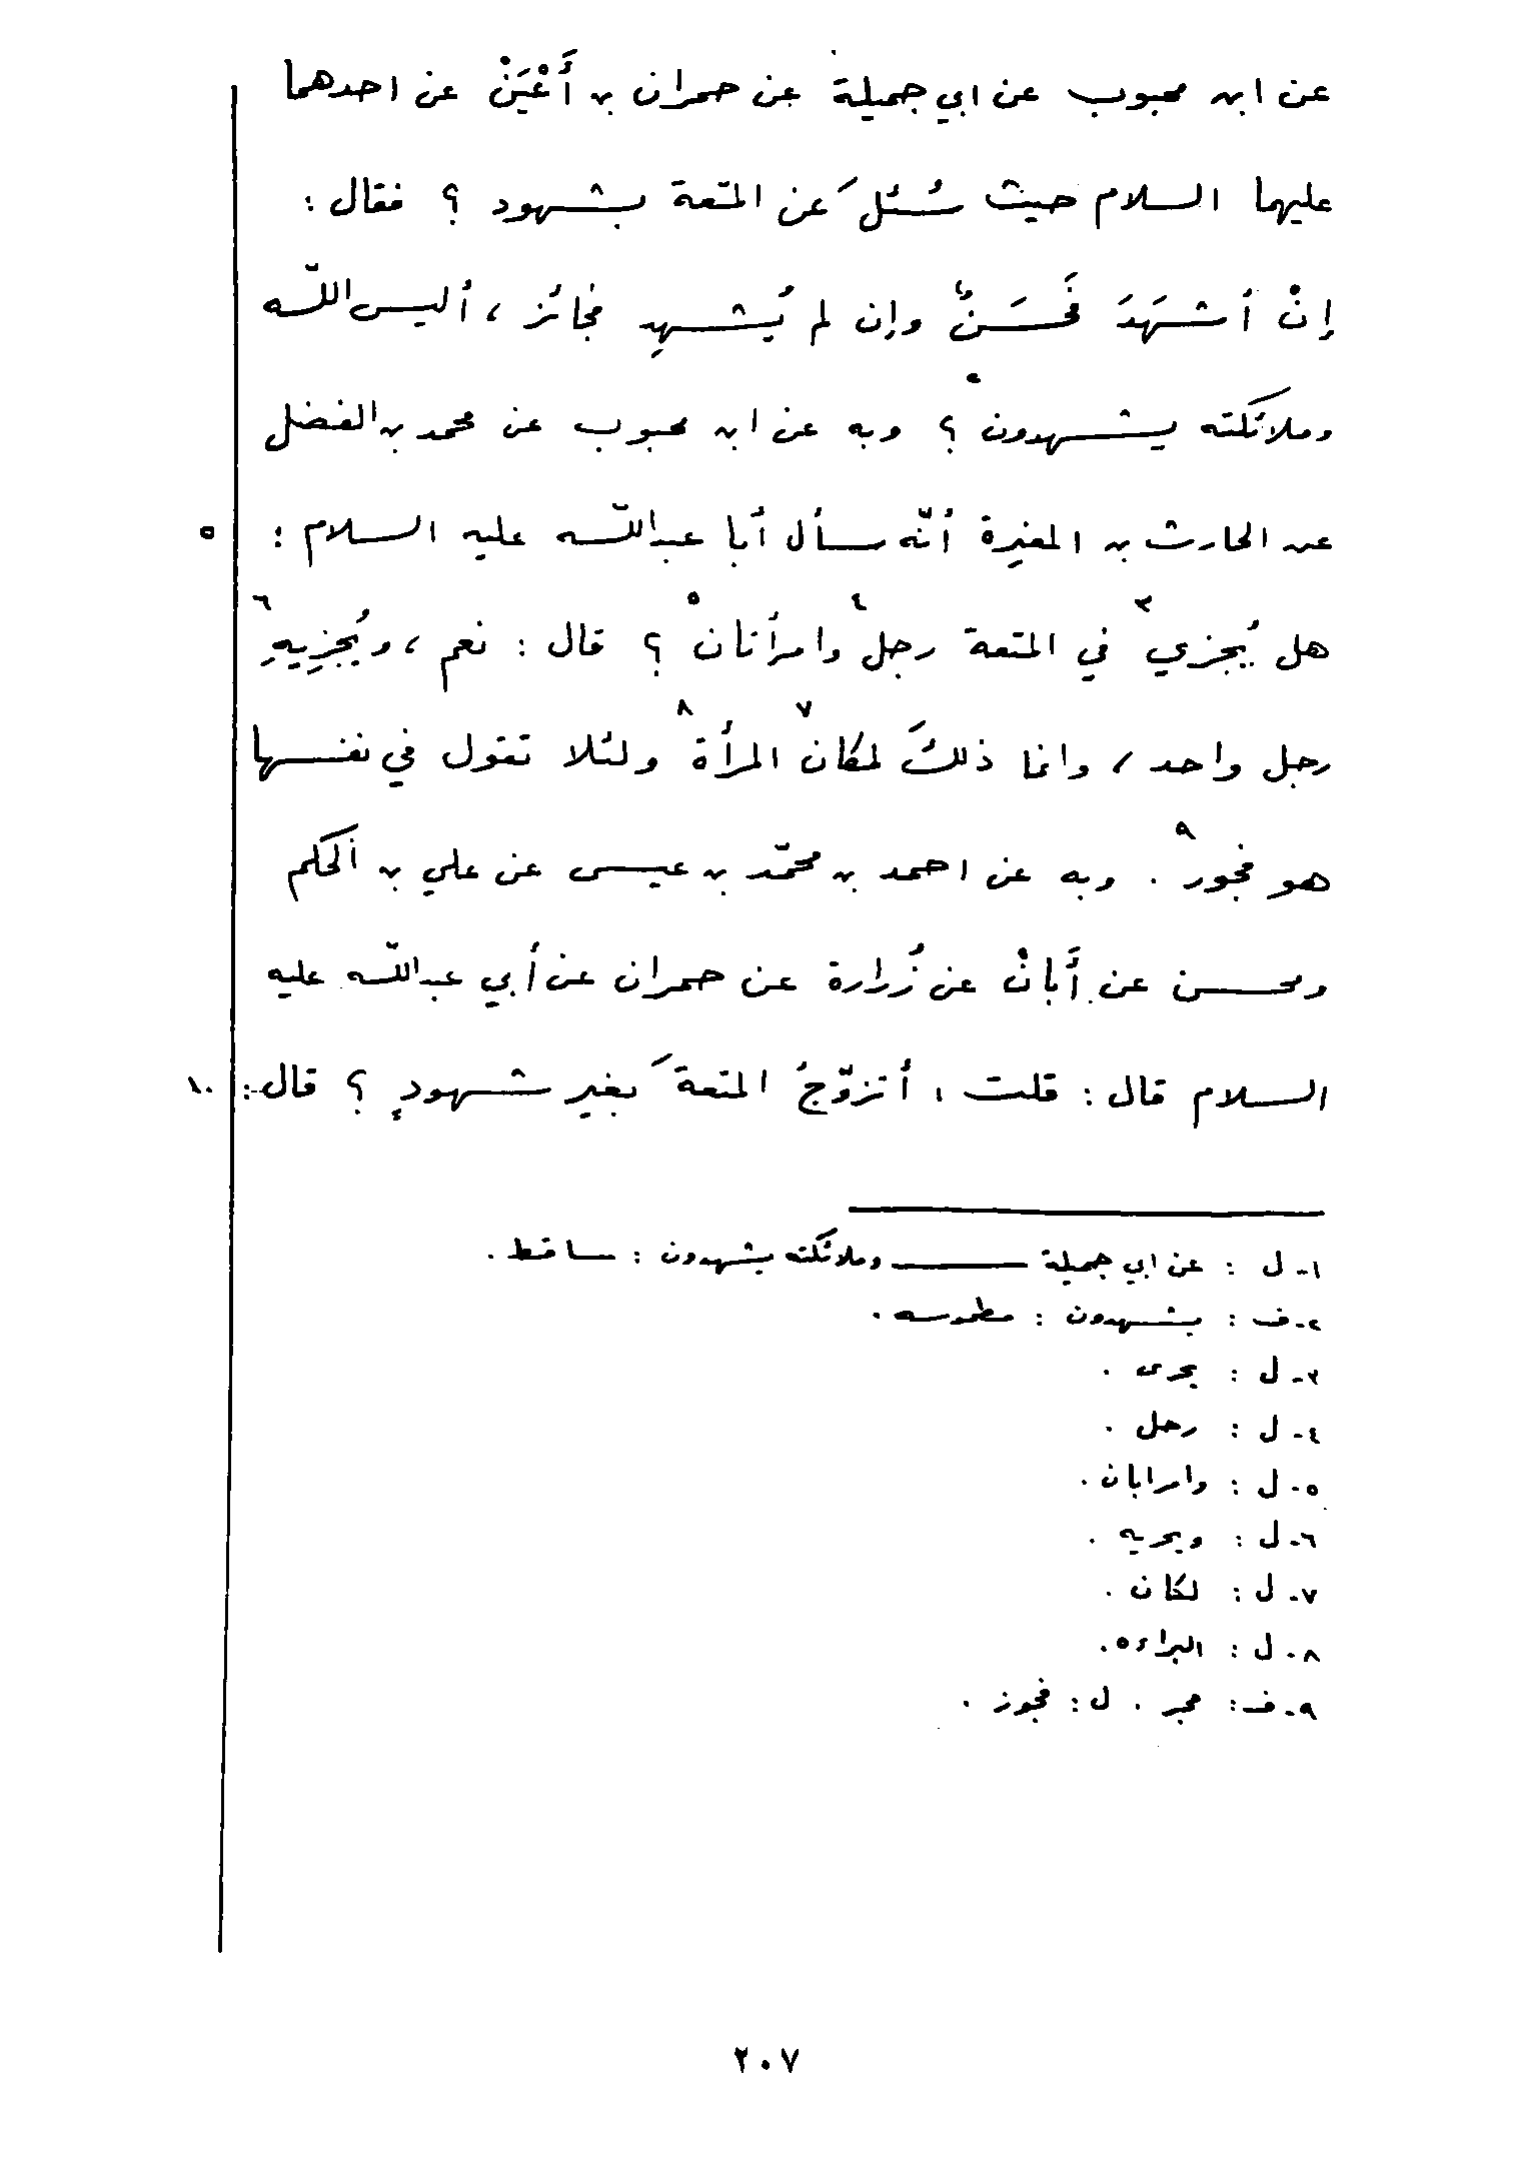 عن ابن محبوب عن ابي جميلة عن حمران بن أَعْيَنْ عن احدهما
عليهما السلام حيث سُئلَ عن المتعة بشهود ؟ فقال :
إنْ أشهَدَ فَحَسَنٌ وإن لم يُشهِد فجائز ، أليس اللّه
وملائكته يشهدون٢ ؟ وبه عن ابن محبوب عن محمد بن الفضل
عن الحارث بن المغيرة أنّه سأل أبا عبداللّه عليه السلام : ٥
هل يُجزي٣ في المتعة رجل٤ وامرأتان٥ ؟ قال : نعم ، ويُجزِيهِ٦
رجل واحد ، وانما ذلكَ لمكان٧ المرأة٨ ولئلا تقول في نفسها
هو فجور٩ . وبه عن احمد بن محمّد بن عيسى عن علي بن الحكم
ومحسن عن أَبانْ عن زُرارة عن حمران عن أبي عبداللّه عليه
السلام قال : قلت : أتزوّجُ المتعةَ بغير شهودٍ ؟ قال : ١٠
١- ل : عن ابي جميلة ـــــ وملائكته يشهدون : ساقط .
٢- ف : يشهدون : مطموسه .
٣- ل : يحرى .
٤- ل : رحل .
٥- ل : وامرابان .
٦- ل : ويحريه .
٧- ل : لكان .
٨- ل : البراءه .
٩- ف : مجر . ل : فجوز .
٢٠٧